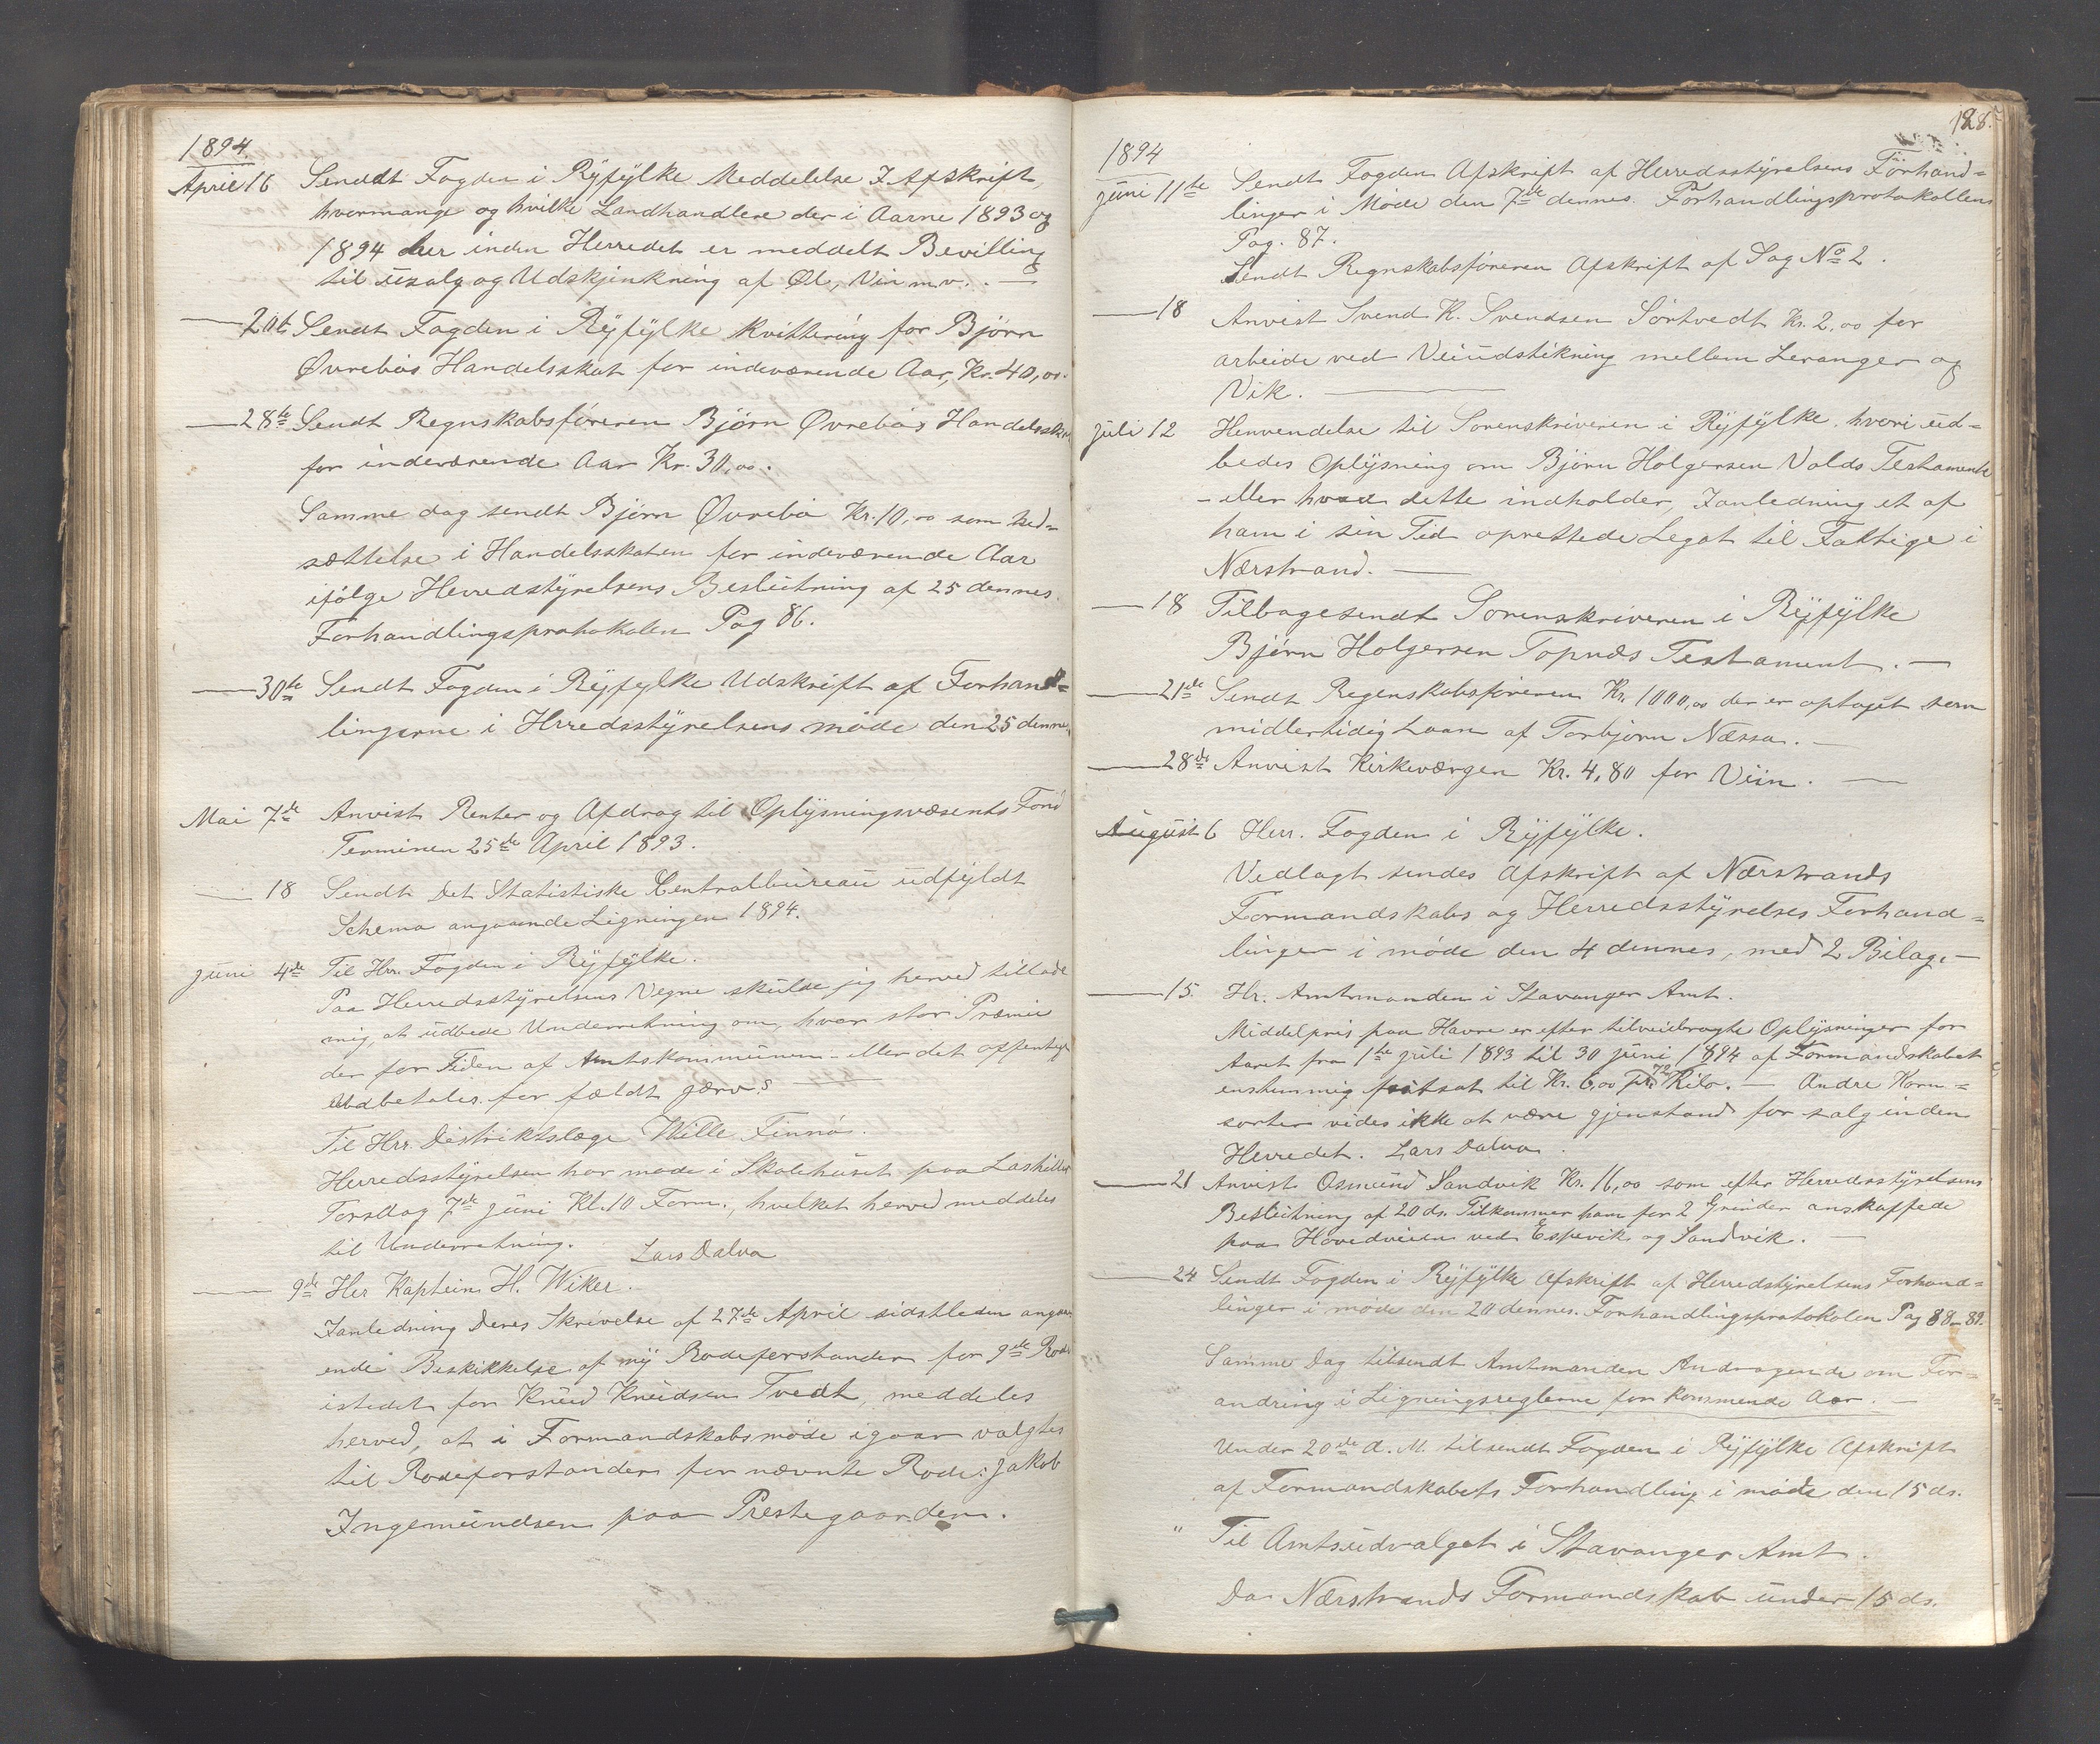 1894.
April 16 Sendt Fogden i Ryfylke Meddelelse I Afskrift,
hvormange og hvilke Landhandlere der i Aarne 1893 og
1894 her inden Herredet er meddelt Bevilling
til Usalg og Udskjenkning af Øl, Vin m.v. . —
— 20de Sendt Fogden i Ryfylke Kvittering for Bjørn
Øvrebøs Handelsskat for indeværende Aar, Kr. 40,00.
— 28de Sendt Regnskabsføreren Bjørn Øvrebøs Handelsskat
for indeværende Aar Kr. 30,00.
Samme dag sendt Bjørn Øvrebø Kr. 10,00 som Ned=
sættelse i Handelsskaten for indeværende Aar
ifølge Herredstyrelsens Beslutning af 25 dennes.
Forhandlingsprotokolen Pag 86.
— 30te Sendt Fogden i Ryfylke Udskrift af Forhand=
lingerne i Hrredsstyrelsens møde den 25 dennes.
Mai 7de Anvist Renter og Afdrag til Oplysningsvæsents Fond
Terminen 25de April 1893.
— 18 Sendt Det Statistiske Centralbureau udfyldt
Schema angaaende Ligningen 1894.
Juni 4de Til Hr. Fogden i Ryfylke.
Paa Herredsstyrelsens Vegne skulde jeg herved tillade
mig, at udbede Underretning om, hvor stor Præmie
der for Tiden af Amtskommunen - eller det offentlige
Udbetales for fældt Jærv? —
Til Hr. Distriktslæge Wille Finnø.
Herredsstyrelsen har møde i Skolehuset paa
Torsdag 7de Juni Kl. 10 Form., hvilket herved meddeles
til Underretning. Lars Dalva
— 9de Her Kaptein H. Wiker.
Ianledning Deres Skrivelse af 27de April sidstleden angaa
ende Beskikkelse af ny Rodeforstander for 9de Rode
istedet for Knud Knudsen Tvedt, meddeles
herved, at i Formandskabsmøde igaar valgtes
til Rodeforstander for nævnte Rode: Jakob
Ingemundsen paa Prestegaarden.
188.
1894
Juni 11te Sendt Fogden Afskrift af Herredsstyrelsens Forhand=
linger i Møde den 7de dennes. Forhandlingsprotokollens
Pag. 87.
Sendt Regnskabsføreren Afskrift af Sag No 2.
— 18 Anvist Svend K. Svendsen Sørtvedt Kr. 2,00 for
arbeide ved Veiudstikning mellem Leranger og
Vik. —
Juli 12 Henvendelse til Sorenskriveren i Ryfylke, hvori ud=
bedes Oplysning om Bjørn Holgersen Valds Testamente
- eller hvad dette indholder, Ianledning et af
ham i sin Tid oprettede Legat til Fattige i
Nærstrand. —
— 18 Tilbagesendt Sorenskriveren i Ryfylke
Bjørn Holgersen Topnæs Testament. —
— 21de Sendt Regnskabsføreren Kr. 1000,00 der er optaget som
midlertidig Laan af Torbjørn Næssa. —
— 28de Anvist Kirkeværgen Kr. 4,80 for Viin. —
August 6 Herr. Fogden i Ryfylke.
Vedlagt sendes Afskrift af Nærstrands
Formandskabs og Herredsstyrelses Forhand=
linger i møde den 4 dennes, med 2 Bilag. —
— 15. Hr. Amtmanden i Stavanger Amt.
Middelpris paa Havre er efter tilveiebragte Oplysninger for
Aaret fra 1te Juli 1893 til 30 Juni 1894 af Formandskabet
enstemmig fastsat til Kr. 6,00 pr. 72 Kilo. — Andre Korn=
sorter vides ikke at være gjenstand for salg inden
Herredet. Lars Dalva.
— 21 Anvist Osmund Sandvik Kr. 16,00 som efter Herredsstyrelsens
Beslutning af 20 ds. Tilkommer ham for 2 Grinder anskaffede
paa Hovedveien ved Espevik og Sandvik. —
— 24 Sendt Fogden i Ryfylke Afskrift af Herredstyrelsens Forhand=
linger i møde den 20 dennes. Forhandlingsprotokolen Pag 88-89.
Samme Dag tilsendt Amtmanden Andragende om For=
andring i Ligningsreglerne for kommende Aar. —
Under 20de d. M. tilsendt Fogden i Ryfylke Afskrift
af Formandskabets Forhandling i møde den 15 ds.
" Til Amtsudvalget i Stavanger Amt.
Da Nærstrands Formandskab under 15 ds.